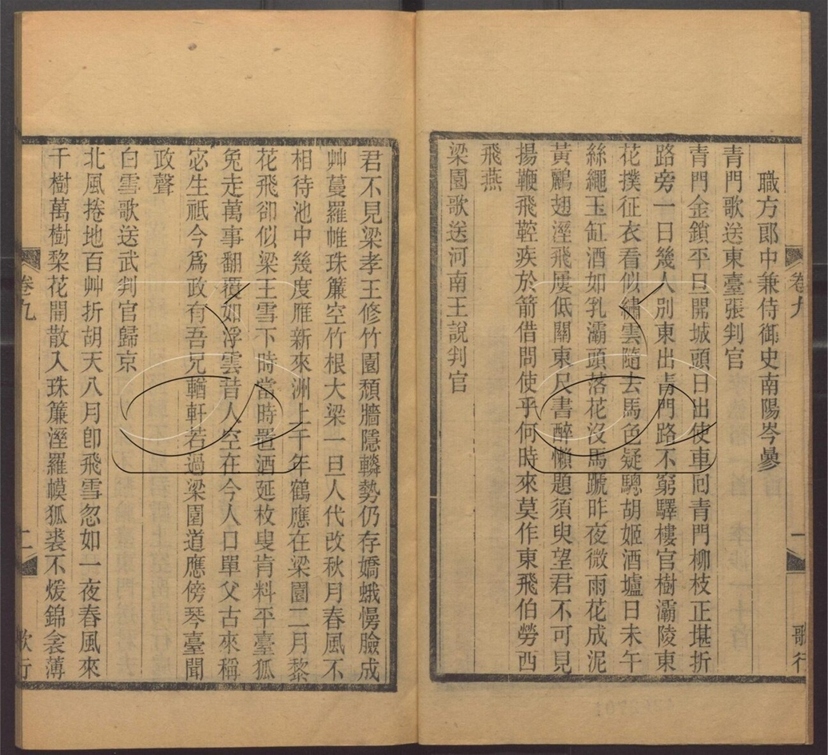 卷九
一
歌行
職方郎中兼侍御史南陽岑參
青門歌送東臺張判官
青門金鎖平旦開城頭日出使車回青門柳枝正堪折
路旁一日幾人別東出青門路不窮驛樓官樹灞陵東
花撲征衣看似繡雲隨去馬色疑驄胡姬酒壚日未午
絲繩玉缸酒如乳灞頭落花沒馬蹏昨夜微雨花成泥
黃鸝翅溼飛屢低關東尺書醉懶題須臾望君不可見
揚鞭飛鞚疾於箭借問使乎何時來莫作東飛伯勞西
飛燕
梁園歌送河南王說判官
君不見梁孝王修竹園頹牆隱轔勢仍存嬌蛾慢臉成
艸蔓羅帷珠簾空竹根大梁一旦人代改秋月春風不
相待池中幾度雁新來洲上千年鶴應在梁園二月黎
花飛卻似梁王雪下時當時置酒延枚叟肯料平臺狐
兔走萬事翻覆如浮雲昔人空在今人口單父古來稱
宓生祇今爲政有吾兄輶軒若過梁園道應傍琴臺聞
政聲
白雪歌送武判官歸京
北風捲地百艸折胡天八月卽飛雪忽如一夜春風來
千樹萬樹棃花開散入珠簾溼羅幕狐裘不煖錦衾薄
卷九
二
歌行